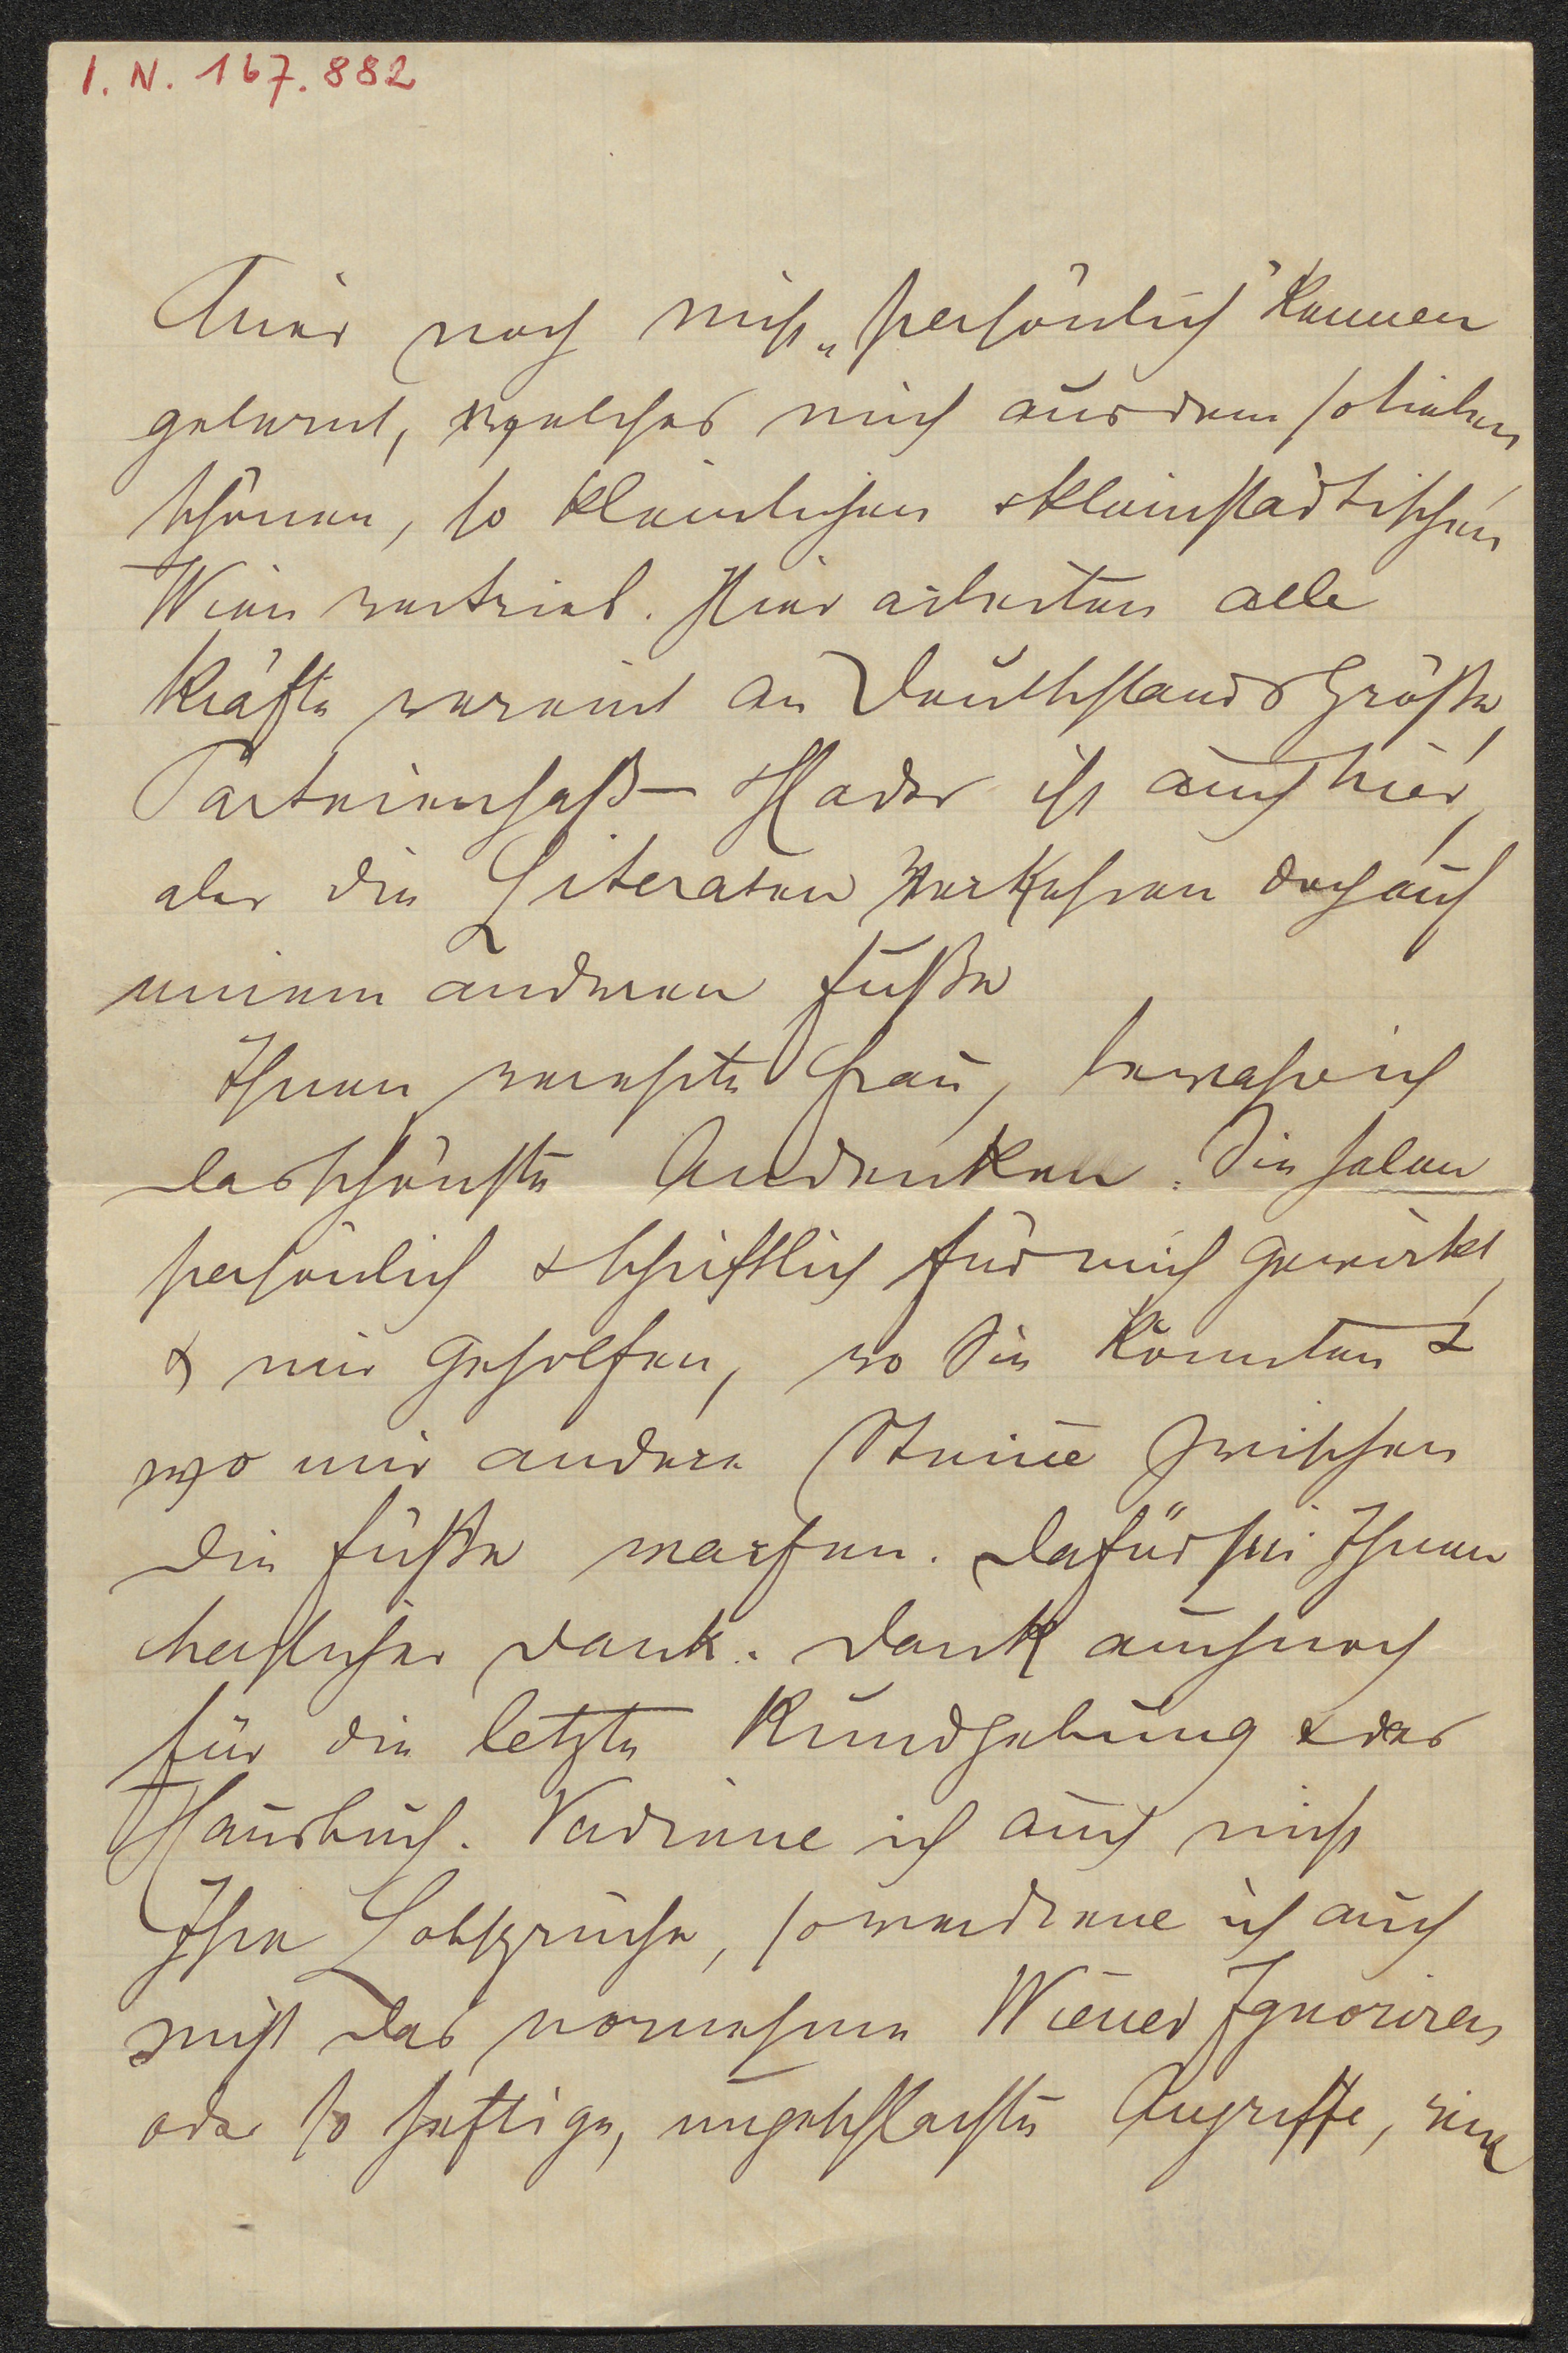 I. N. 167.882
noch nicht „persönlich" kennen
gelernt, welches mich aus dem so lieben
schönen, so kleinlichen & kleinstädtischen
Wien vertrieb. Hier arbeiten alle
Kräfte vereint an Deutschlands Größe,
Parteienhaß & Hader ist auch hier,
aber die Literaten verkehren doch auf
einem anderen Fuße
Ihnen verehrte Frau, bewahre ich
das schönste Andenken. Sie haben
persönlich & schriftlich für mich gewirkt,
& mir geholfen, wo Sie konnten &
wo mir andere Steine zwischen
die Füße warfen. Dafür sei Ihnen
herzlicher Dank. Dank auch noch
für die letzte Kundgebung & das
Hausbuch. Verdiene ich auch nicht
Ihre Lobsprüche, so verdiene ich auch
nicht das vornehme Wiener Ignoriren
oder so heftige, ungeschlachte Angriffe, wie